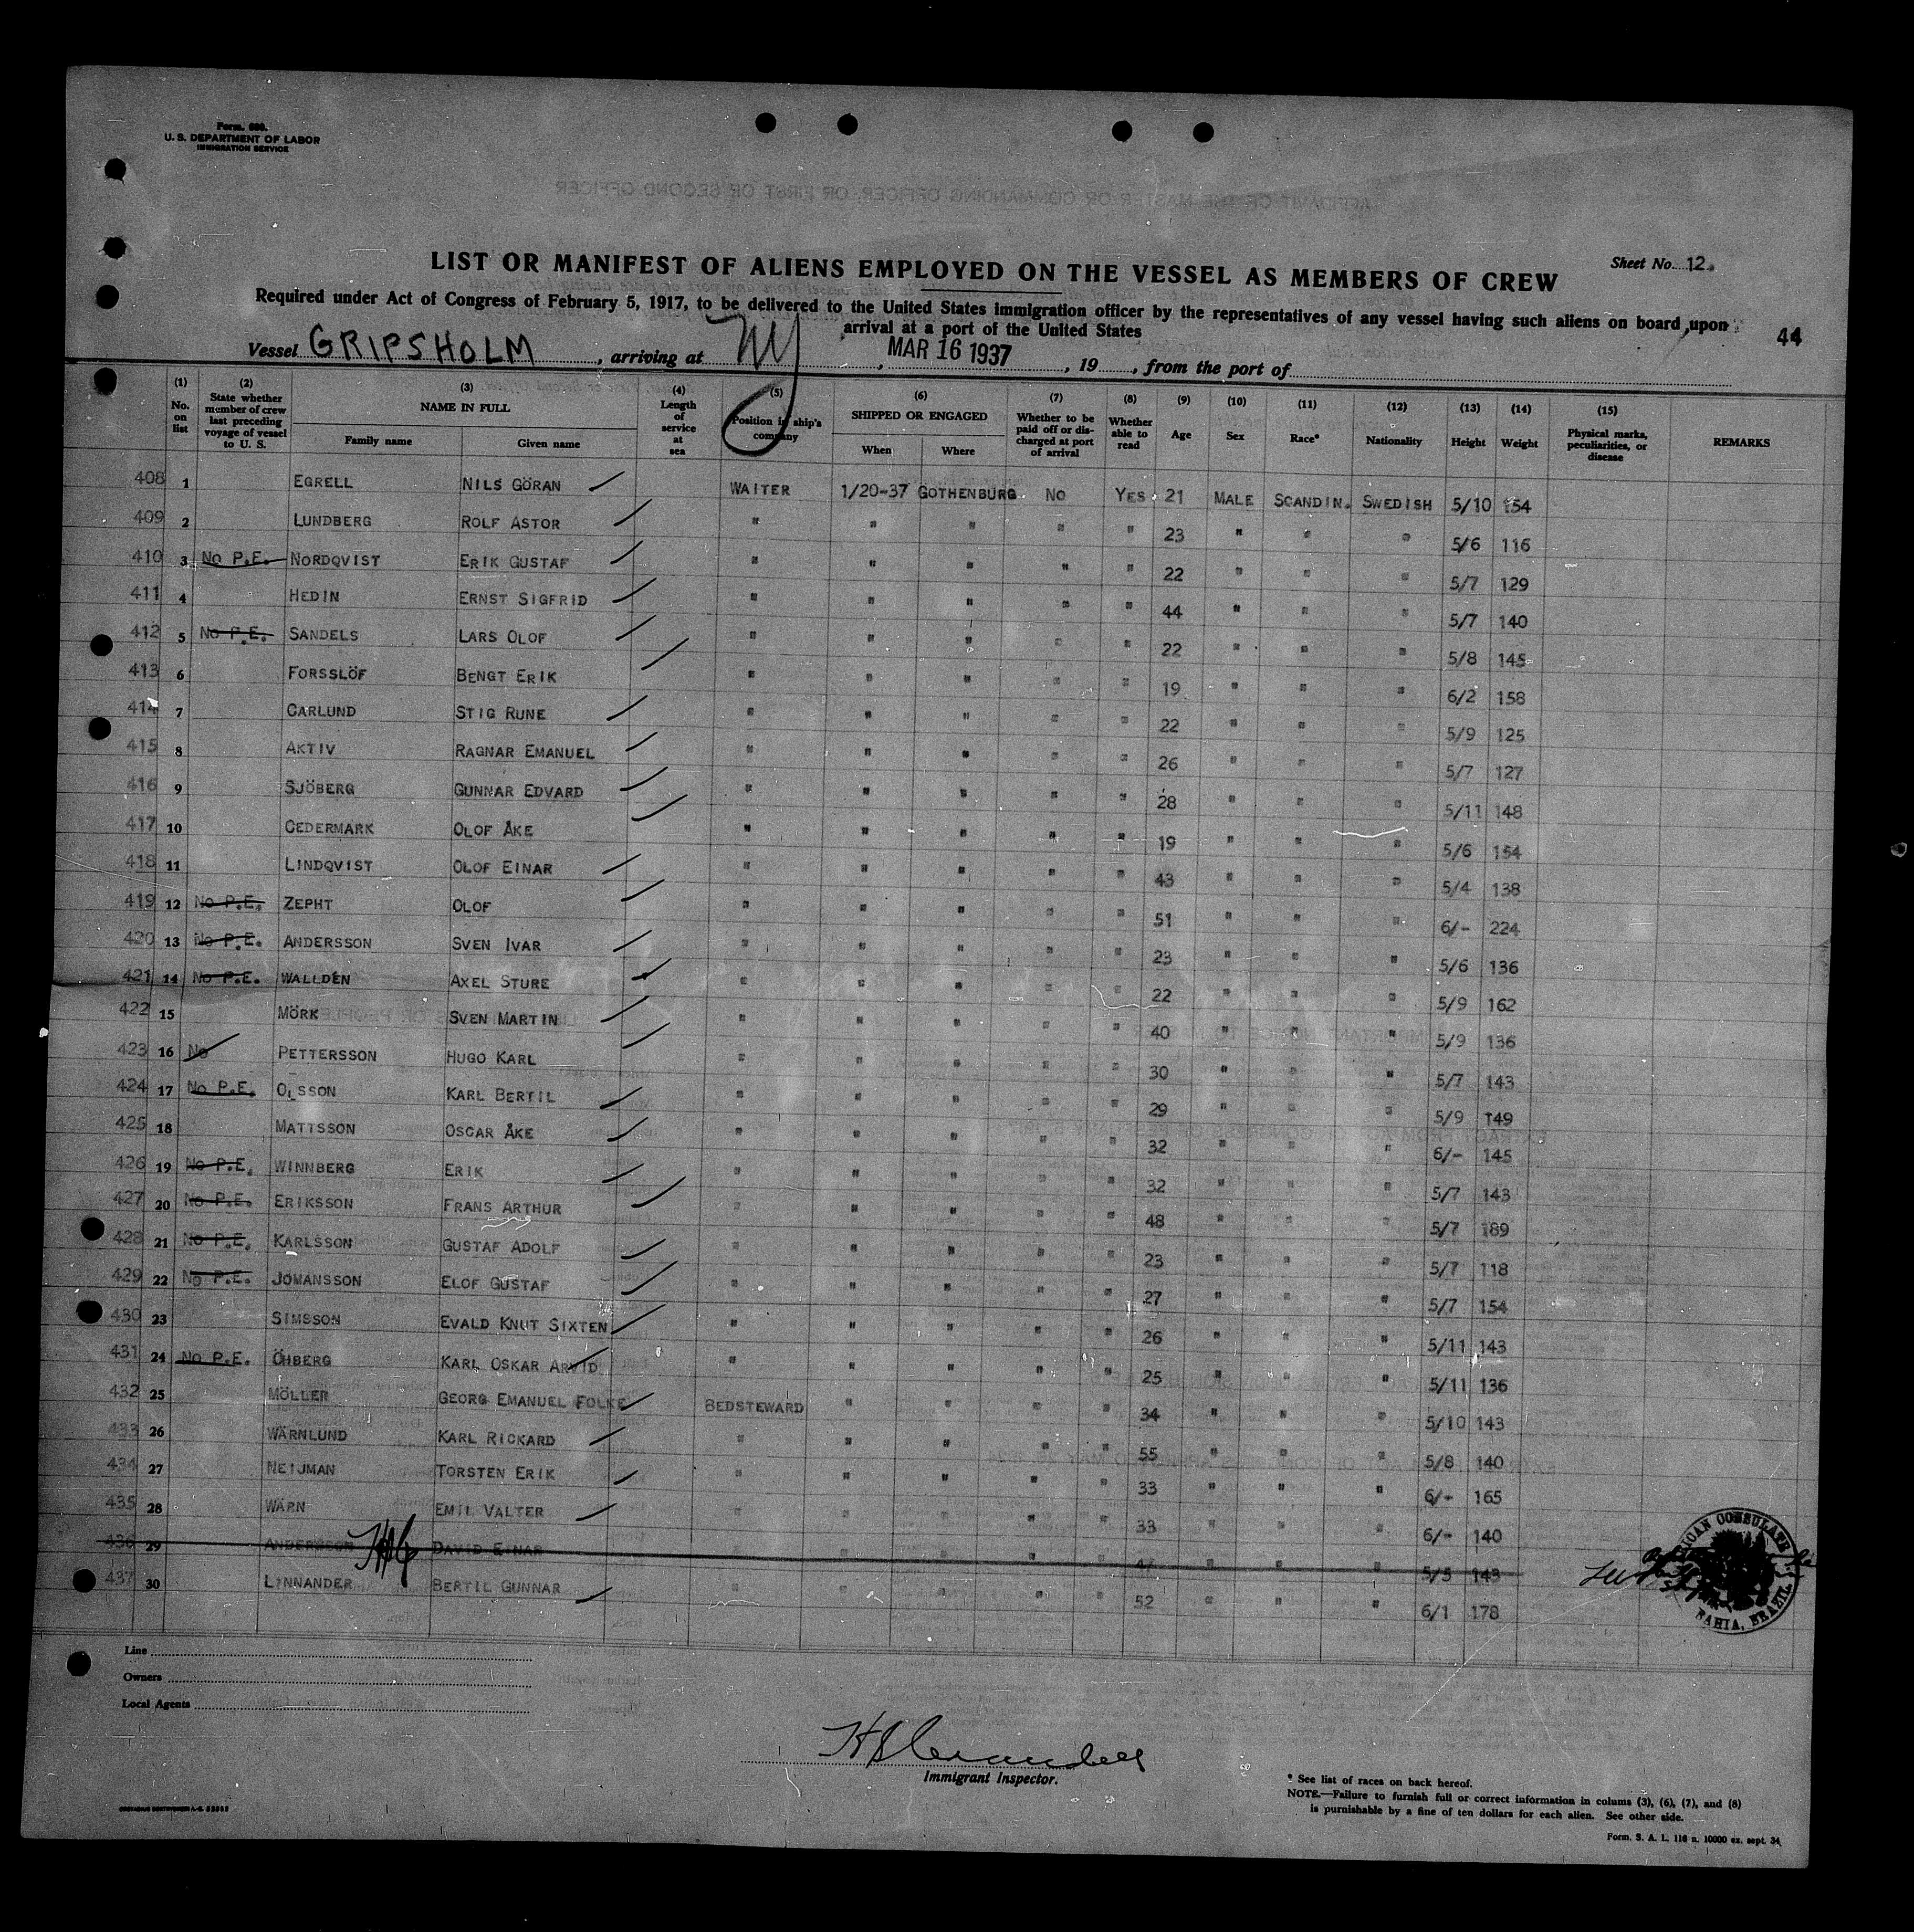 Form. 680.
U. S. DEPARTMENT OF LABOR
IMMIGRATION SERVICE
LIST OR MANIFEST OF ALIENS EMPLOYED ON THE VESSEL AS MEMBERS OF CREW
Sheet No. 12.
Required under Act of Congress of February 5, 1917, to be delivered to the United States immigration officer by the representatives of any vessel having such aliens on board upon
arrival at a port of the United States
44
Vessel GRIPSHOLM, arriving at NY, MAR 16 1937, 19, from the port of
(1) No. on list (2) State whether member of crew last preceding voyage of vessel to U. S. (3) NAME IN FULL Family name Given name (4) Length of service at sea (5) Position in ship's company (6) SHIPPED OR ENGAGED When Where (7) Whether to be paid off or discharged at port of arrival (8) Whether able to read (9) Age (10) Sex (11) Race* (12) Nationality (13) Height (14) Weight (15) Physical marks, peculiarities, or disease REMARKS
408 1 EGRELL NILS GÖRAN WAITER 1/20-37 GOTHENBURG NO YES 21 MALE SCANDIN. SWEDISH 5/10 154
409 2 LUNDBERG ROLF ASTOR " " " " " 23 " " " 5/6 116
410 3 NO P.E. NORDQVIST ERIK GUSTAF " " " " " 22 " " " 5/7 129
411 4 HEDIN ERNST SIGFRID " " " " " 44 " " " 5/7 140
412 5 NO P.E. SANDELS LARS OLOF " " " " " 22 " " " 5/8 145
413 6 FORSSLÖF BENGT ERIK " " " " " 19 " " " 6/2 158
414 7 CARLUND STIG RUNE " " " " " 22 " " " 5/9 125
415 8 AKTIV RAGNAR EMANUEL " " " " " 26 " " " 5/7 127
416 9 SJÖBERG GUNNAR EDVARD " " " " " 28 " " " 5/11 148
417 10 CEDERMARK OLOF ÅKE " " " " " 19 " " " 5/6 154
418 11 LINDQVIST OLOF EINAR " " " " " 43 " " " 5/4 138
419 12 NO P.E. ZEPHT OLOF " " " " " 51 " " " 6/- 224
420 13 NO P.E. ANDERSSON SVEN IVAR " " " " " 23 " " " 5/6 136
421 14 NO P.E. WALLDÉN AXEL STURE " " " " " 22 " " " 5/9 162
422 15 MÖRK SVEN MARTIN " " " " " 40 " " " 5/9 136
423 16 NO PETTERSSON HUGO KARL " " " " " 30 " " " 5/7 143
424 17 NO P.E. OLSSON KARL BERTIL " " " " " 29 " " " 5/9 149
425 18 MATTSSON OSCAR ÅKE " " " " " 32 " " " 6/- 145
426 19 NO P.E. WINNBERG ERIK " " " " " 32 " " " 5/7 143
427 20 NO P.E. ERIKSSON FRANS ARTHUR " " " " " 48 " " " 5/7 189
428 21 NO P.E. KARLSSON GUSTAF ADOLF " " " " " 23 " " " 5/7 118
429 22 NO P.E. JOMANSSON ELOF GUSTAF " " " " " 27 " " " 5/7 154
430 23 SIMSSON EVALD KNUT SIXTEN " " " " " 26 " " " 5/11 143
431 24 NO P.E. ÖHBERG KARL OSKAR ARVID " " " " " 25 " " " 5/11 136
432 25 MÖLLER GEORG EMANUEL FOLKE BEDSTEWARD " " " " 34 " " " 5/10 143
433 26 WÄRNLUND KARL RICKARD " " " " " 55 " " " 5/8 140
434 27 NEIJMAN TORSTEN ERIK " " " " " 33 " " " 6/- 165
435 28 WÄRN EMIL VALTER " " " " " 33 " " " 6/- 140
436 29 ANDERSSON DAVID EINAR " " " " " 47 " " " 5/5 143
437 30 LINNANDER BERTIL GUNNAR " " " " " 52 " " " 6/1 178
AMERICAN CONSULATE
BAHIA, BRAZIL
Line
Owners
Local Agents
Immigrant Inspector.
* See list of races on back hereof.
NOTE.—Failure to furnish full or correct information in colums (3), (6), (7), and (8)
is punishable by a fine of ten dollars for each alien. See other side.
Form. S. A. L. 116 n. 10000 ex. sept. 34